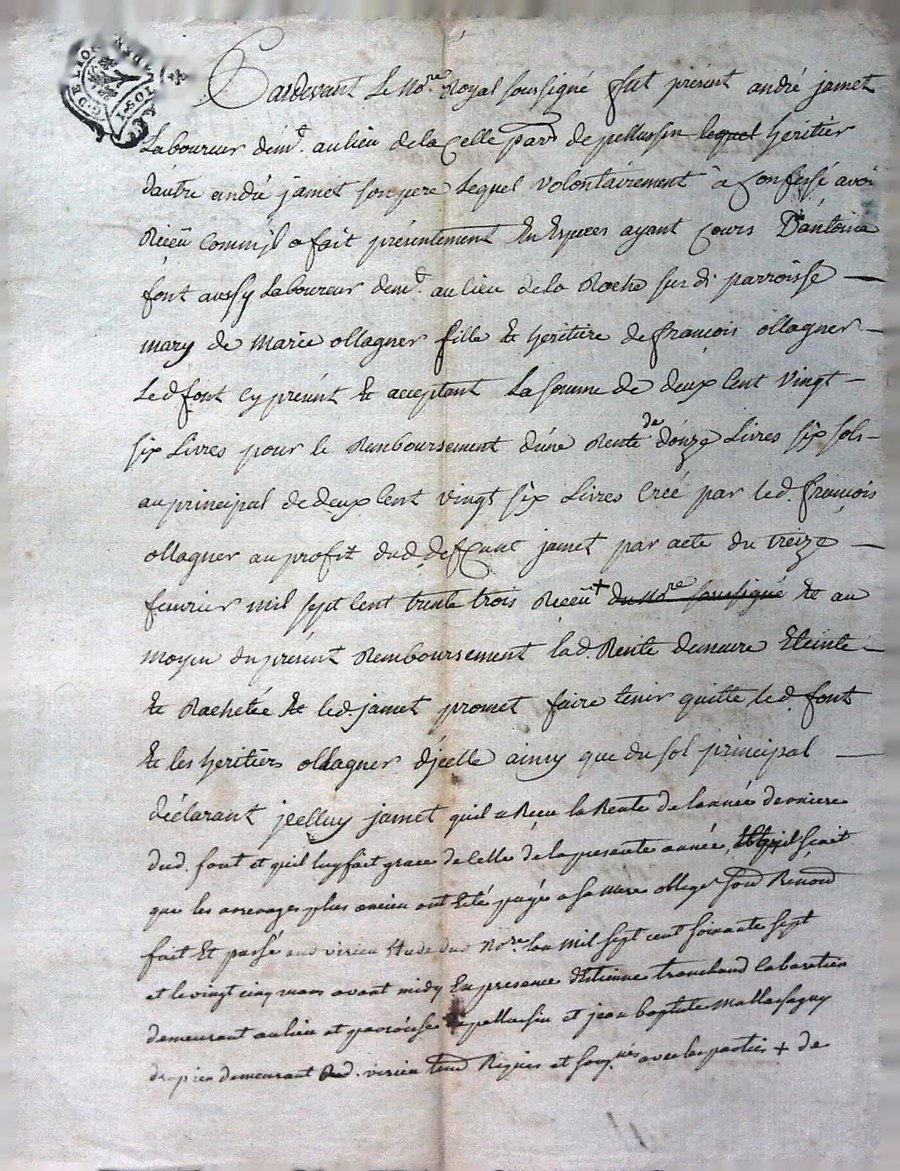 Pardevant Le No.re Royal soussigné fut présent andré jamet
Laboureur dem.t au lieu de la Celle parr de pellussin lequel héritier
dautre andré jamet son pere Lequel volontairement à Confessé avoir
Reçeu Comm'jl a fait présentement En Espèces ayant Cours D'antoine
font aussy Laboureur dem.t au lieu de la Roche susdi parroisse
mary de Marie ollagner fille & heritiere de françois ollagner
Led font Cy présent & acceptant La somme de deux Cent Vingt
six Livres pour le Remboursement d'une Rente de douze Livres six sols
au principal de deux Cent vingt six Livres Créé par led. françois
ollagner au profit dud. deffunt jamet par acte du treize
feuvrier mil sept Cent trente trois Reçeu + du No.re soussigné & au
moyen du présent Remboursement lad. Rente demeure Eteinte
& Rachetée & led. jamet promet faire tenir quitte led. font
& les heritiers ollagner d'jcelle ainsy que du sol principal
déclarant jcelluy jamet quil a Reçeu la Rente de lannée derniere
dud. font et quil luy fait grace de Celle de la presente année, et quil scait
que les arrerages plus ancien ont Eté payé a sa mere obligé sond Renond
fait Et passé aud virieu Etude dud No.re lan mil sept cent soixante sept
et le vingt cinq mars avant midy En presence d'Etienne tranchand Cabaretier
demeurant au lieu et parroisse de pellussin et jean baptiste
drapier demeurant aud. virieu Requis et avec les parties + de